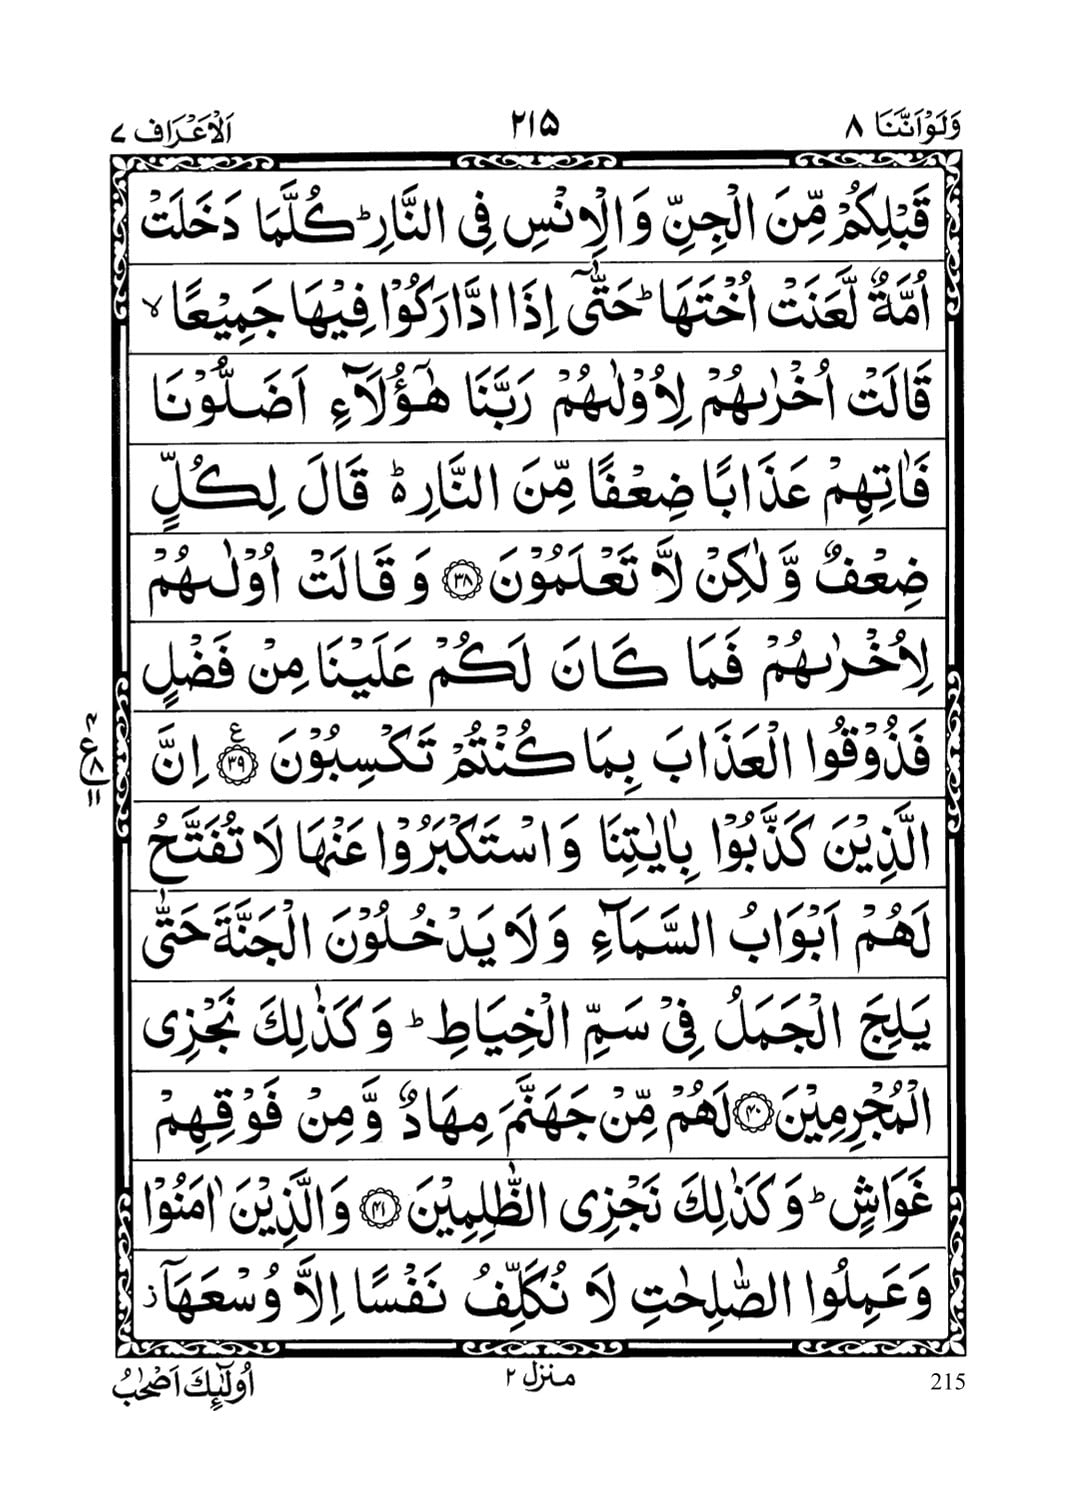 وَلَوْاَنَّنَا ۸ ۲۱۵ اَلْاَعْرَاف ۷
قَبْلِكُمْ مِّنَ الْجِنِّ وَالْاِنْسِ فِی النَّارِ ؕ كُلَّمَا دَخَلَتْ
اُمَّةٌ لَّعَنَتْ اُخْتَهَا ؕ حَتّٰۤی اِذَا ادَّارَكُوْا فِیْهَا جَمِیْعًا ۙ
قَالَتْ اُخْرٰىهُمْ لِاُوْلٰىهُمْ رَبَّنَا هٰۤؤُلَآءِ اَضَلُّوْنَا
فَاٰتِهِمْ عَذَابًا ضِعْفًا مِّنَ النَّارِ ۬ؕ قَالَ لِكُلٍّ
ضِعْفٌ وَّلٰكِنْ لَّا تَعْلَمُوْنَ ﴿۳۸﴾ وَقَالَتْ اُوْلٰىهُمْ
لِاُخْرٰىهُمْ فَمَا كَانَ لَكُمْ عَلَیْنَا مِنْ فَضْلٍ
فَذُوْقُوا الْعَذَابَ بِمَا كُنْتُمْ تَكْسِبُوْنَ ﴿۳۹﴾ ع اِنَّ
ع ۴ ۸ ۱۱
الَّذِیْنَ كَذَّبُوْا بِاٰیٰتِنَا وَاسْتَكْبَرُوْا عَنْهَا لَا تُفَتَّحُ
لَهُمْ اَبْوَابُ السَّمَآءِ وَلَا یَدْخُلُوْنَ الْجَنَّةَ حَتّٰی
یَلِجَ الْجَمَلُ فِیْ سَمِّ الْخِیَاطِ ؕ وَكَذٰلِكَ نَجْزِی
الْمُجْرِمِیْنَ ﴿۴۰﴾ لَهُمْ مِّنْ جَهَنَّمَ مِهَادٌ وَّمِنْ فَوْقِهِمْ
غَوَاشٍ ؕ وَكَذٰلِكَ نَجْزِی الظّٰلِمِیْنَ ﴿۴۱﴾ وَالَّذِیْنَ اٰمَنُوْا
وَعَمِلُوا الصّٰلِحٰتِ لَا نُكَلِّفُ نَفْسًا اِلَّا وُسْعَهَاۤ ز
215 منزل ۲ اُولٰٓئِكَ اَصْحٰبُ